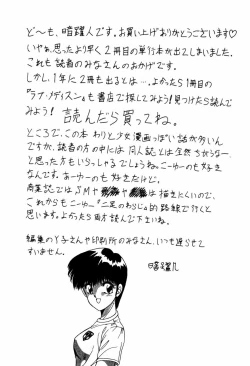 ど〜も、暗躍人です。お買い上げありがとうございます♡
いやぁ、思ったより早く2冊目の単行本が出てしまいました。
これも読者のみなさんのおかげです。
しかし、1年に2冊も出るとは…。よかったら1冊目の
『ラブ・メディスン』も書店で探してみよう!見つけたら読んで
みよう!
読んだら買ってね。
ところで、この本わりと少女漫画っぽい話が多いん
ですか、読者の方の中には同人誌とは全然ちがうなー
と思った方もいらっしゃるでしょうね。こーゆーのも好き
なんです。あーゆーのも好きだけど。
商業誌ではSMや は描きにくいので、
これからもこーゆー"二足のわらじ"的路線で行くと
思います。よかったら両方読んで下さいね。
編集のY子さんや印刷所のみなさん、いつも遅らせて
すいません。